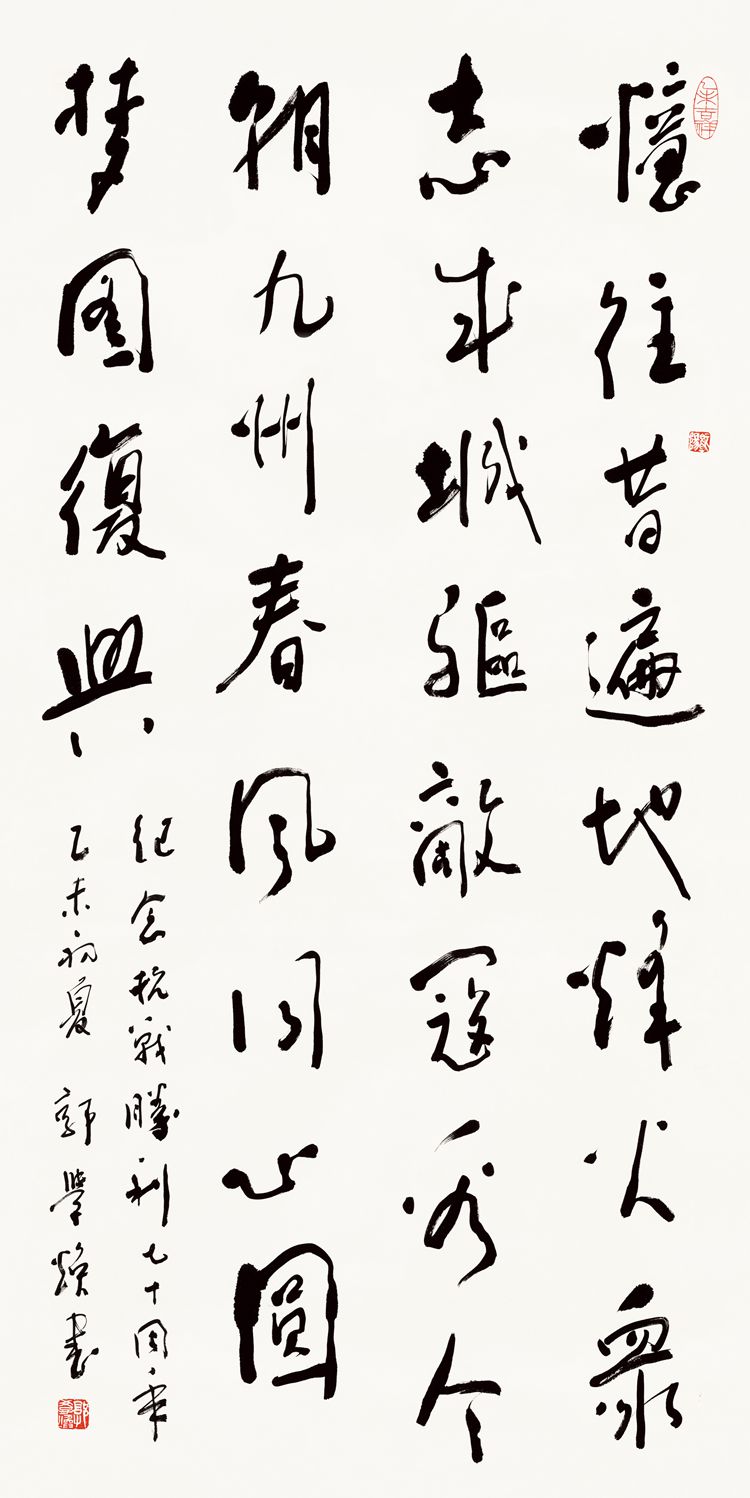 憶往昔遍地烽火眾
志成城驅敵寇看今
朝九州春風同心圓
梦圖復興
紀念抗戰勝利七十周年
乙未初夏 郭學煥書